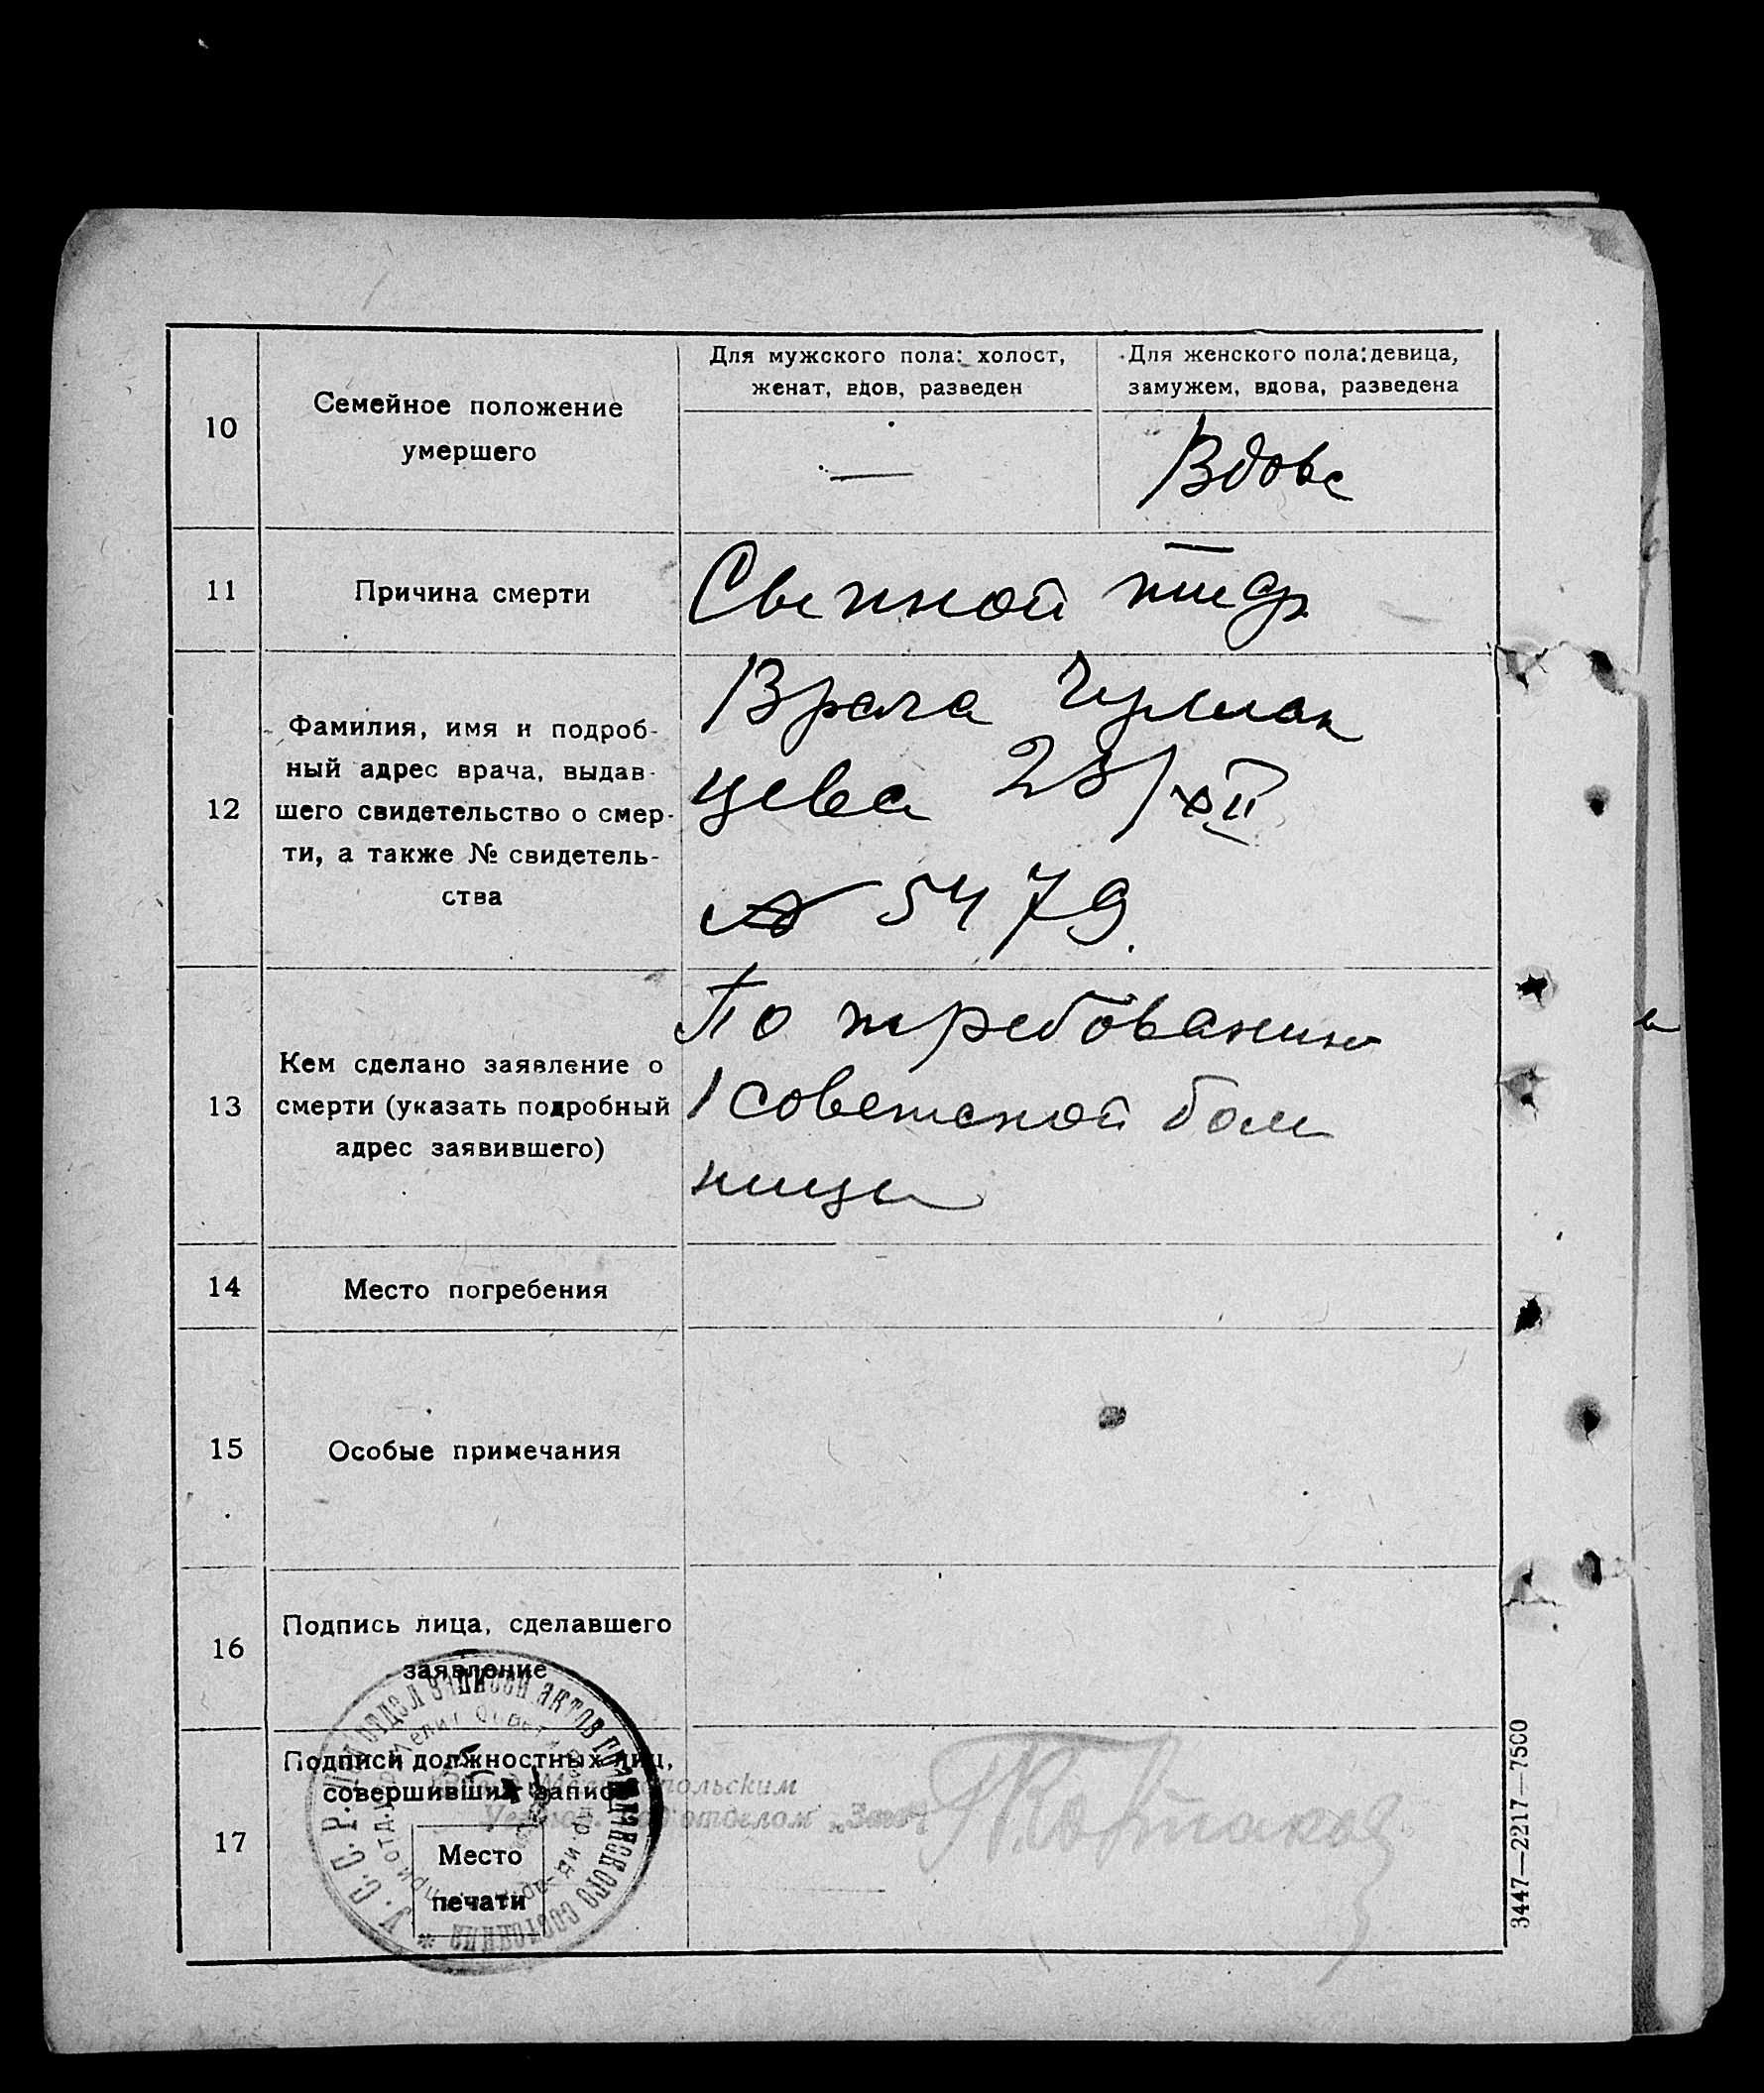 10
Семейное положение
умершего
Для мужского пола: холост,
женат, вдов, разведен
Для женского пола: девица,
замужем, вдова, разведена
—
Вдова
11
Причина смерти
Сыпной тиф
12
Фамилия, имя и подроб-
ный адрес врача, выдав-
шего свидетельство о смер-
ти, а также № свидетель-
ства
Врача
цева 25/XII
№ 5479.
13
Кем сделано заявление о
смерти (указать подробный
адрес заявившего)
По требованию
1 советской боль
ницы
14
Место погребения
15
Особые примечания
16
Подпись лица, сделавшего
заявление
17
Подписи должностных лиц,
совершивших запись
Место
печати
У. С. С. Р. отдел записей актов гражданского состояния *
отделом „Загс“
3447—2217—7500